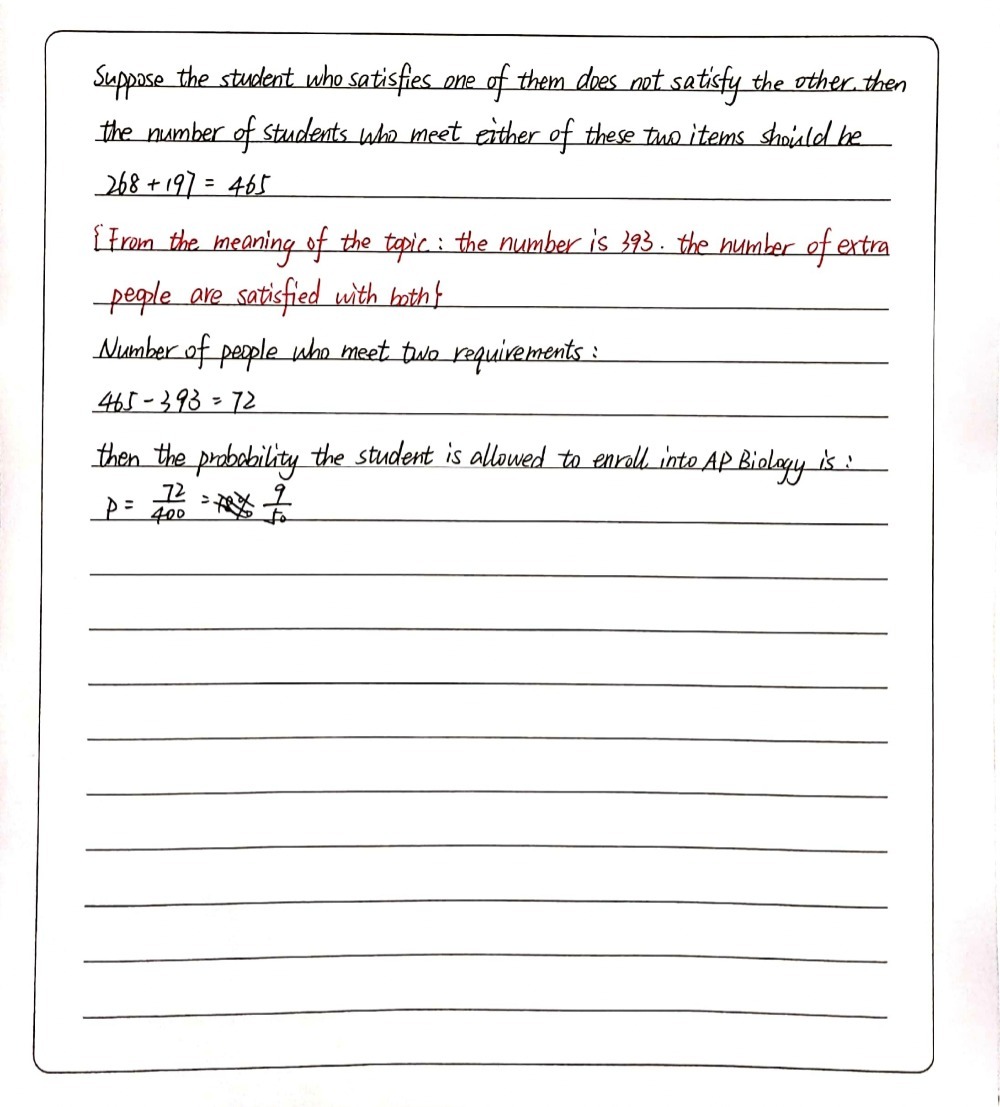 Suppose the student who satisfies one of them does not satisfy the other. then
the number of students who meet either of these two items should be
268 + 197 = 465
{From the meaning of the topic : the number is 393. the number of extra
people are satisfied with both}
Number of people who meet two requirements :
465 - 393 = 72
then the probability the student is allowed to enroll into AP Biology is :
P = 72/400 = 9/50